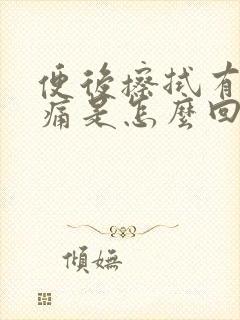 便後擦拭有
痛是怎麼回
傾嫵